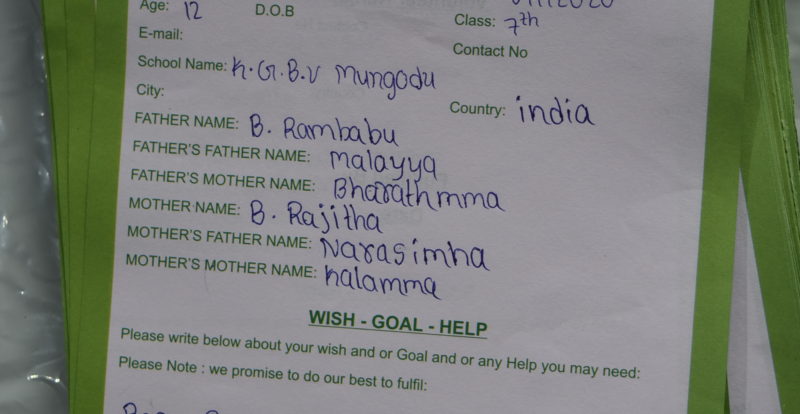 Age: 12 D.O.B Class: 7th
E-mail: Contact No
School Name: K.G.B.V Mungodu
City: Country: india
FATHER NAME: B. Rambabu
FATHER'S FATHER NAME: malayya
FATHER'S MOTHER NAME: Bharathmma
MOTHER NAME: B. Rajitha
MOTHER'S FATHER NAME: Narasimha
MOTHER'S MOTHER NAME: kalamma
WISH - GOAL - HELP
Please write below about your wish and or Goal and or any Help you may need:
Please Note : we promise to do our best to fulfil: